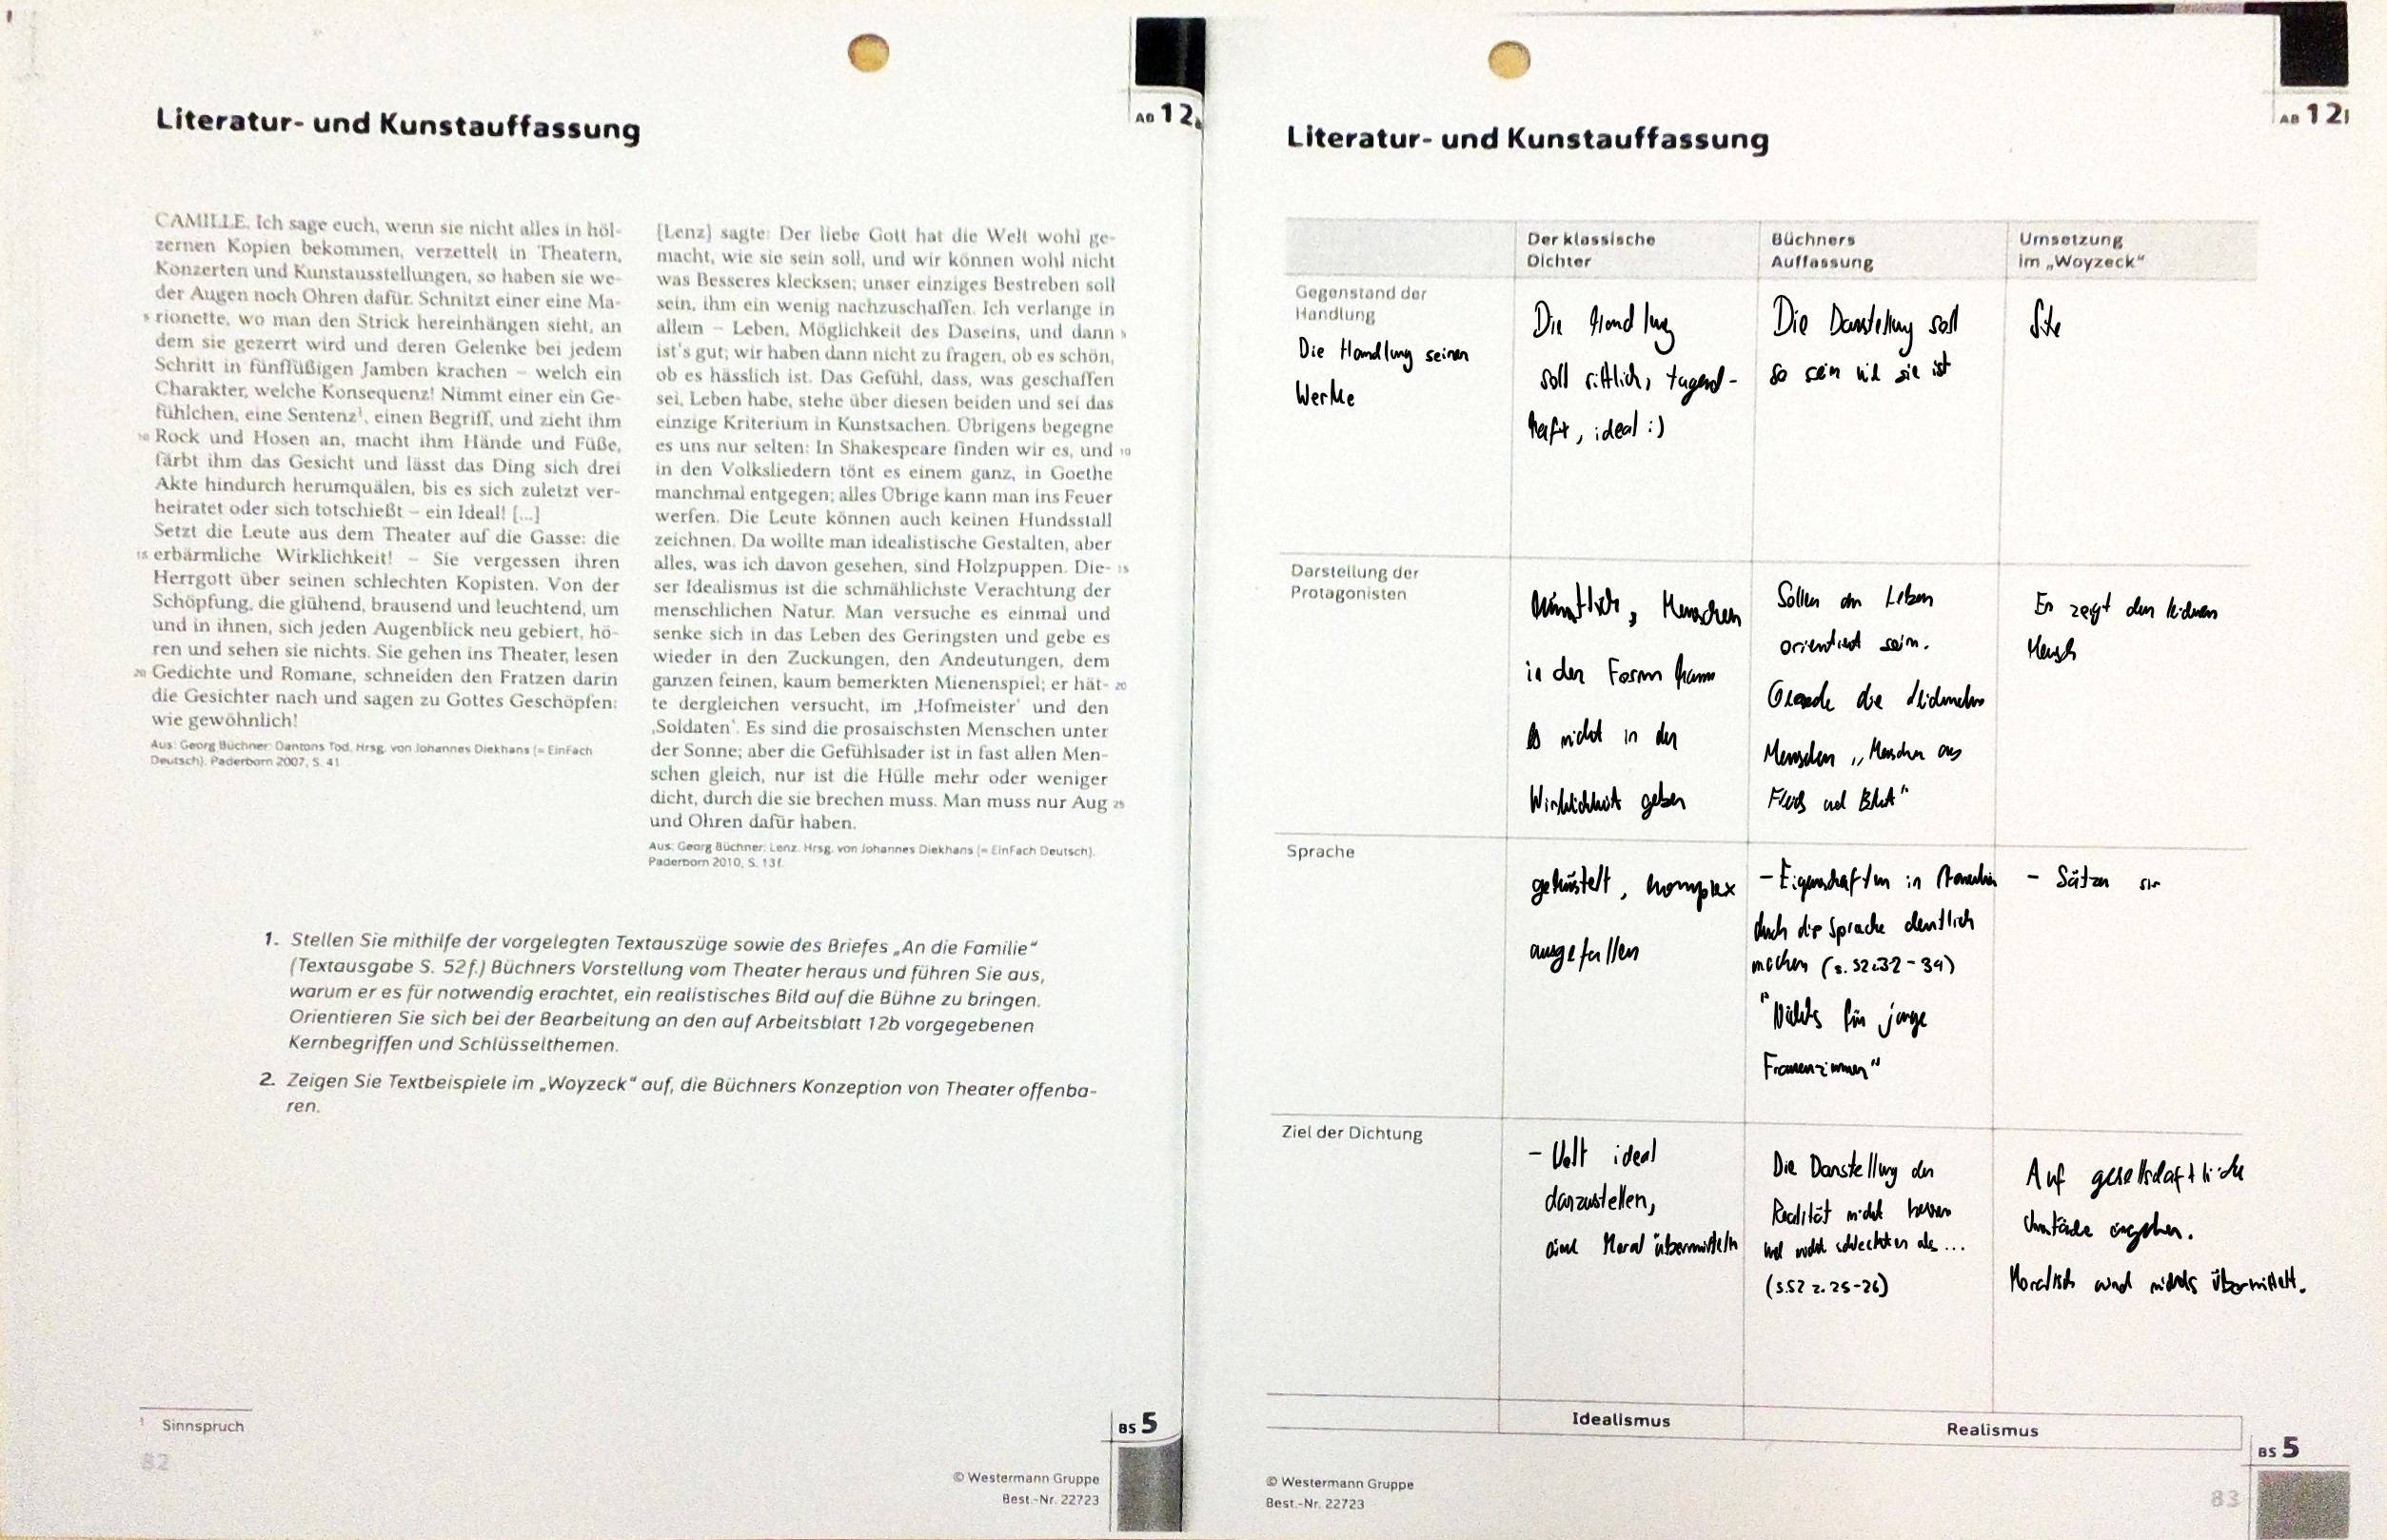 AB 12
Literatur- und Kunstauffassung
CAMILLE. Ich sage euch, wenn sie nicht alles in höl-
zernen Kopien bekommen, verzettelt in Theatern,
Konzerten und Kunstausstellungen, so haben sie we-
der Augen noch Ohren dafür. Schnitzt einer eine Ma-
5 rionette, wo man den Strick hereinhängen sieht, an
dem sie gezerrt wird und deren Gelenke bei jedem
Schritt in fünffüßigen Jamben krachen – welch ein
Charakter, welche Konsequenz! Nimmt einer ein Ge-
fühlchen, eine Sentenz¹, einen Begriff, und zieht ihm
10 Rock und Hosen an, macht ihm Hände und Füße,
färbt ihm das Gesicht und lässt das Ding sich drei
Akte hindurch herumquälen, bis es sich zuletzt ver-
heiratet oder sich totschießt – ein Ideal! [...]
Setzt die Leute aus dem Theater auf die Gasse: die
15 erbärmliche Wirklichkeit! – Sie vergessen ihren
Herrgott über seinen schlechten Kopisten. Von der
Schöpfung, die glühend, brausend und leuchtend, um
und in ihnen, sich jeden Augenblick neu gebiert, hö-
ren und sehen sie nichts. Sie gehen ins Theater, lesen
20 Gedichte und Romane, schneiden den Fratzen darin
die Gesichter nach und sagen zu Gottes Geschöpfen:
wie gewöhnlich!
Aus: Georg Büchner: Dantons Tod. Hrsg. von Johannes Diekhans (= EinFach
Deutsch). Paderborn 2007, S. 41
[Lenz] sagte: Der liebe Gott hat die Welt wohl ge-
macht, wie sie sein soll, und wir können wohl nicht
was Besseres klecksen; unser einziges Bestreben soll
sein, ihm ein wenig nachzuschaffen. Ich verlange in
allem – Leben, Möglichkeit des Daseins, und dann 5
ist's gut; wir haben dann nicht zu fragen, ob es schön,
ob es hässlich ist. Das Gefühl, dass, was geschaffen
sei, Leben habe, stehe über diesen beiden und sei das
einzige Kriterium in Kunstsachen. Übrigens begegne
es uns nur selten: In Shakespeare finden wir es, und 10
in den Volksliedern tönt es einem ganz, in Goethe
manchmal entgegen; alles Übrige kann man ins Feuer
werfen. Die Leute können auch keinen Hundsstall
zeichnen. Da wollte man idealistische Gestalten, aber
alles, was ich davon gesehen, sind Holzpuppen. Die- 15
ser Idealismus ist die schmählichste Verachtung der
menschlichen Natur. Man versuche es einmal und
senke sich in das Leben des Geringsten und gebe es
wieder in den Zuckungen, den Andeutungen, dem
ganzen feinen, kaum bemerkten Mienenspiel; er hät- 20
te dergleichen versucht, im ‚Hofmeister' und den
‚Soldaten'. Es sind die prosaischsten Menschen unter
der Sonne; aber die Gefühlsader ist in fast allen Men-
schen gleich, nur ist die Hülle mehr oder weniger
dicht, durch die sie brechen muss. Man muss nur Aug 25
und Ohren dafür haben.
Aus: Georg Büchner: Lenz. Hrsg. von Johannes Diekhans (= EinFach Deutsch).
Paderborn 2010, S. 13f.
1. Stellen Sie mithilfe der vorgelegten Textauszüge sowie des Briefes „An die Familie"
(Textausgabe S. 52f.) Büchners Vorstellung vom Theater heraus und führen Sie aus,
warum er es für notwendig erachtet, ein realistisches Bild auf die Bühne zu bringen.
Orientieren Sie sich bei der Bearbeitung an den auf Arbeitsblatt 12b vorgegebenen
Kernbegriffen und Schlüsselthemen.
2. Zeigen Sie Textbeispiele im „Woyzeck" auf, die Büchners Konzeption von Theater offenba-
ren.
¹ Sinnspruch
82
BS 5
© Westermann Gruppe
Best.-Nr. 22723
AB 12
Literatur- und Kunstauffassung
Der klassische
Dichter
Büchners
Auffassung
Umsetzung
im „Woyzeck"
Gegenstand der
Handlung
Die Handlung seiner
Werke
Die Handlung
soll sittlich, tugend-
haft, ideal :)
Die Darstellung soll
so sein wie sie ist
Darstellung der
Protagonisten
künstlich, Menschen
in der Form kann
es nicht in der
Wirklichkeit geben
Sollen am Leben
orientiert sein.
Gerade die leidenden
Menschen „Menschen aus
Fleisch und Blut"
Er zeigt den leidenen
Mensch
Sprache
geküstelt, komplex
ausgefallen
- Eigenschaften in
durch die Sprache deutlich
machen (s. 52 z.32-34)
"Nichts für junge
Frauenzimmer"
- Sätze
Ziel der Dichtung
- Welt ideal
darzustellen,
eine Moral übermitteln
Die Darstellung der
Realität nicht besser
und nicht schlechter als...
(s.52 z.25-26)
Auf gesellschaftliche
Umstände eingehen.
Moralisch wird nichts übermittelt.
Idealismus
Realismus
BS 5
© Westermann Gruppe
Best.-Nr. 22723
83